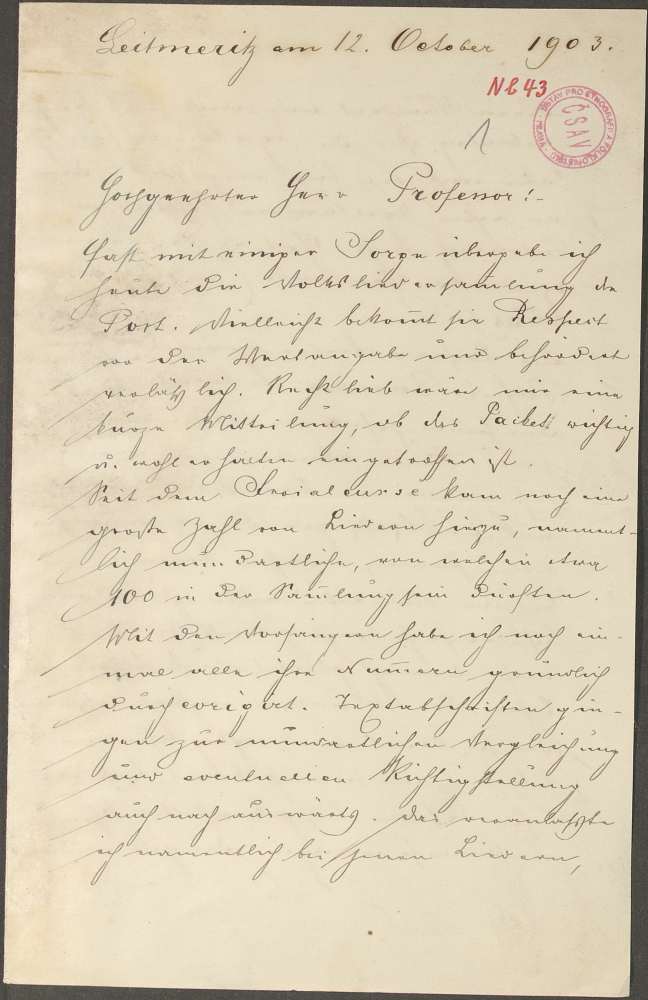 Leitmeritz am 12. October 1903.
NL 43
1
ÚSTAV PRO ETNOGRAFII A FOLKLORISTIKU · PRAHA ·
ČSAV
Hochgeehrter Herr Professor!
Fast mit einiger Sorge übergebe ich
heute die Volksliedersam̄lung der
Post. Vielleicht bekom̄t sie Respect
vor der Wertangabe und befördert
verläßlich. Recht lieb wäre mir eine
kurze Mitteilung, ob das Packet richtig
u. wohl erhalten eingetroffen ist.
Seit dem Ferialcurse kam noch eine
große Zahl von Liedern hinzu, nament-
lich mundartliche, von welchen etwa
100 in der Sam̄lung sein dürften.
Mit den Vorsängern habe ich noch ein-
mal alle ihre Num̄ern gründlich
durchcorigirt. Textabschriften gin-
gen zur mundartlichen Vergleichung
und eventuellen Richtigstellung
auch nach auswärts. Das veranlaßte
ich namentlich bei jenen Liedern,